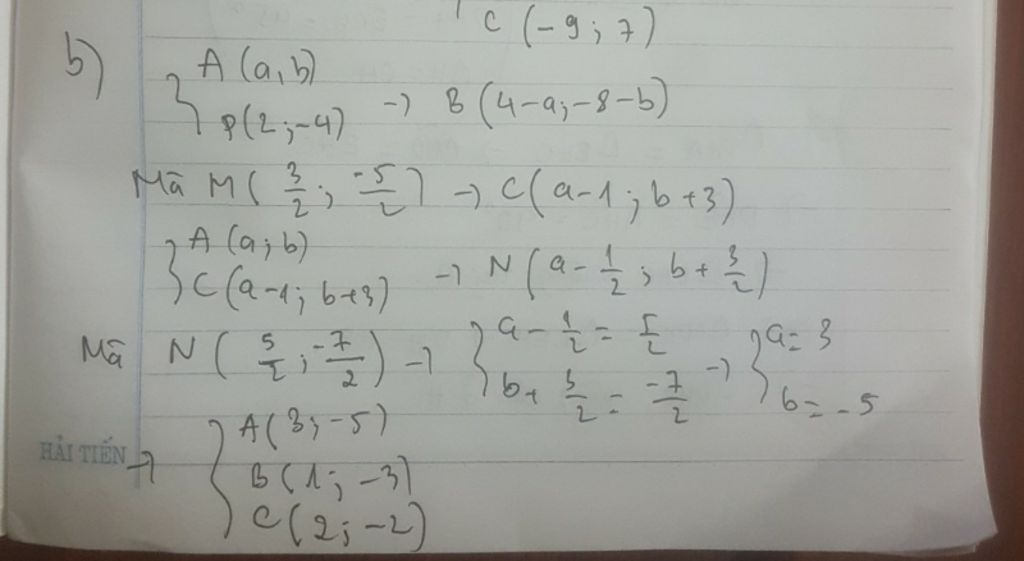 C (-9; 7)
b)
{ A (a, b)
P(2; -4) → B (4-a; -8-b)
Mà M( 3/2 ; -5/2 ) → C(a-1; b+3)
{ A (a; b)
C(a-1; b+3) → N (a - 1/2 ; b + 3/2)
Mà N ( 5/2 ; -7/2 ) → { a - 1/2 = 5/2
b + 3/2 = -7/2 → { a = 3
b = -5
HẢI TIẾN → { A(3; -5)
B(1; -3)
C(2; -2)